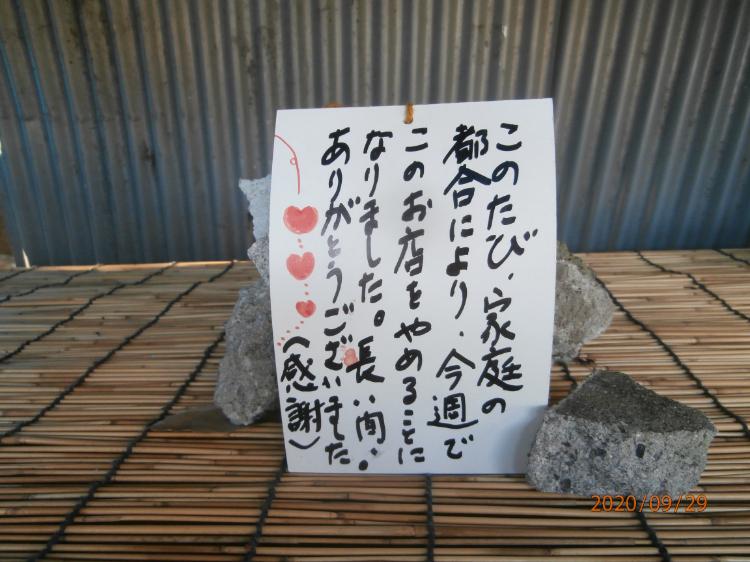 このたび、家庭の
都合により、今週で
このお店をやめることに
なりました。長い間、
ありがとうございました
(感謝)
2020/09/29